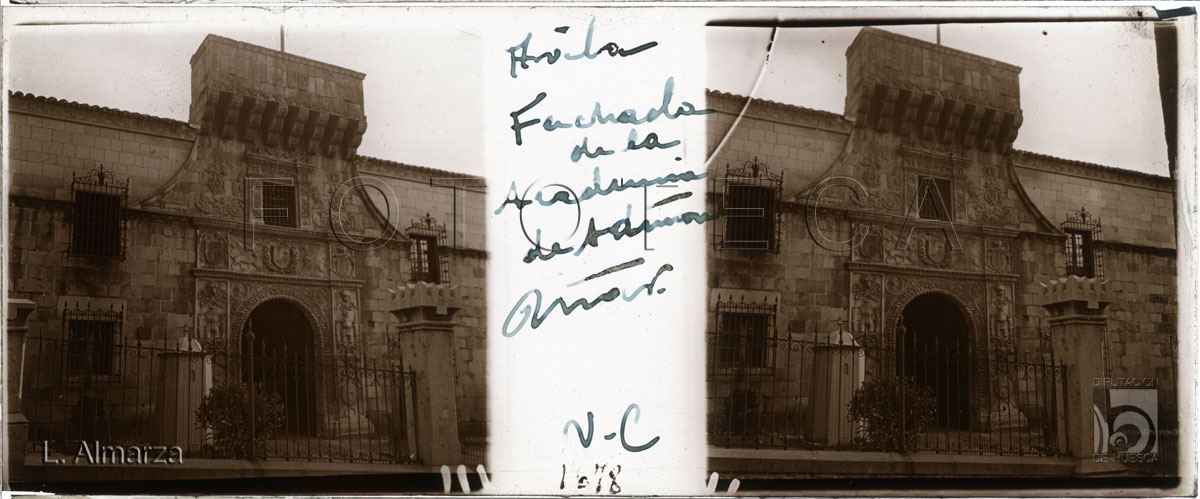 Avila
Fachada
de la
Academia
de Admón
Mtar.
N-C
1678
FOTOTECA
L. Almarza
DIPUTACION
DE HUESCA